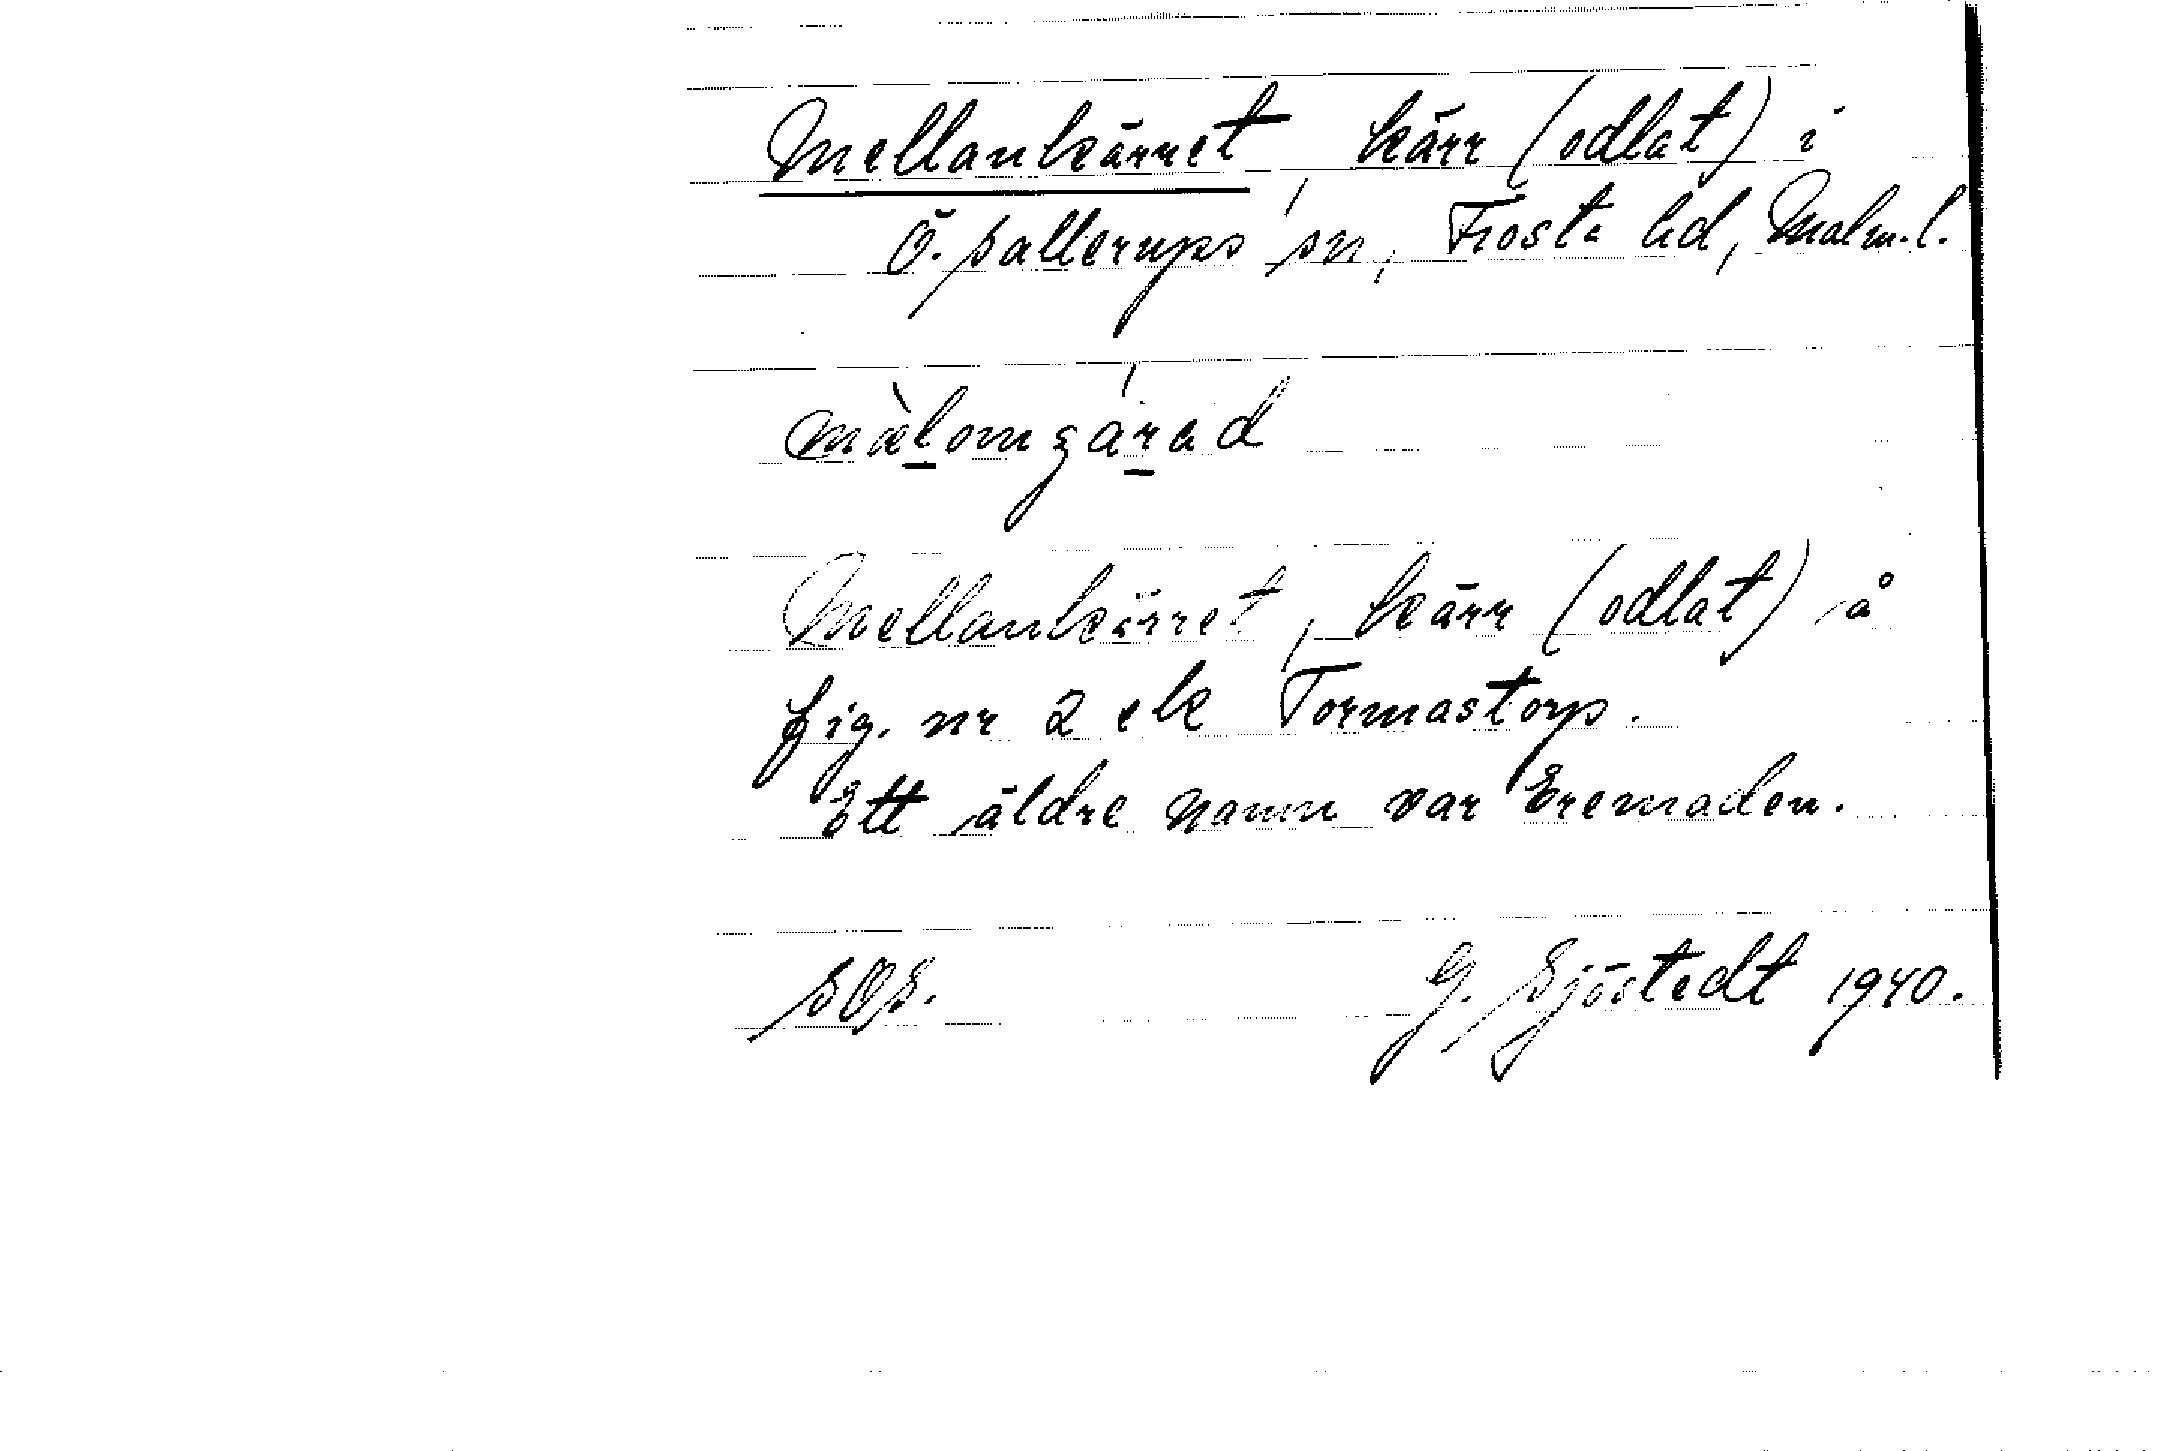 Mellankärret, kärr (odlat) i
Ö. Sallerups sn, Frosta hd, Malm.l.
Mellankärret, kärr (odlat) å
fig. nr 2 ek Tormastorp.
Ett äldre namn var Eremaden.
SOS. G. Sjöstedt 1940.